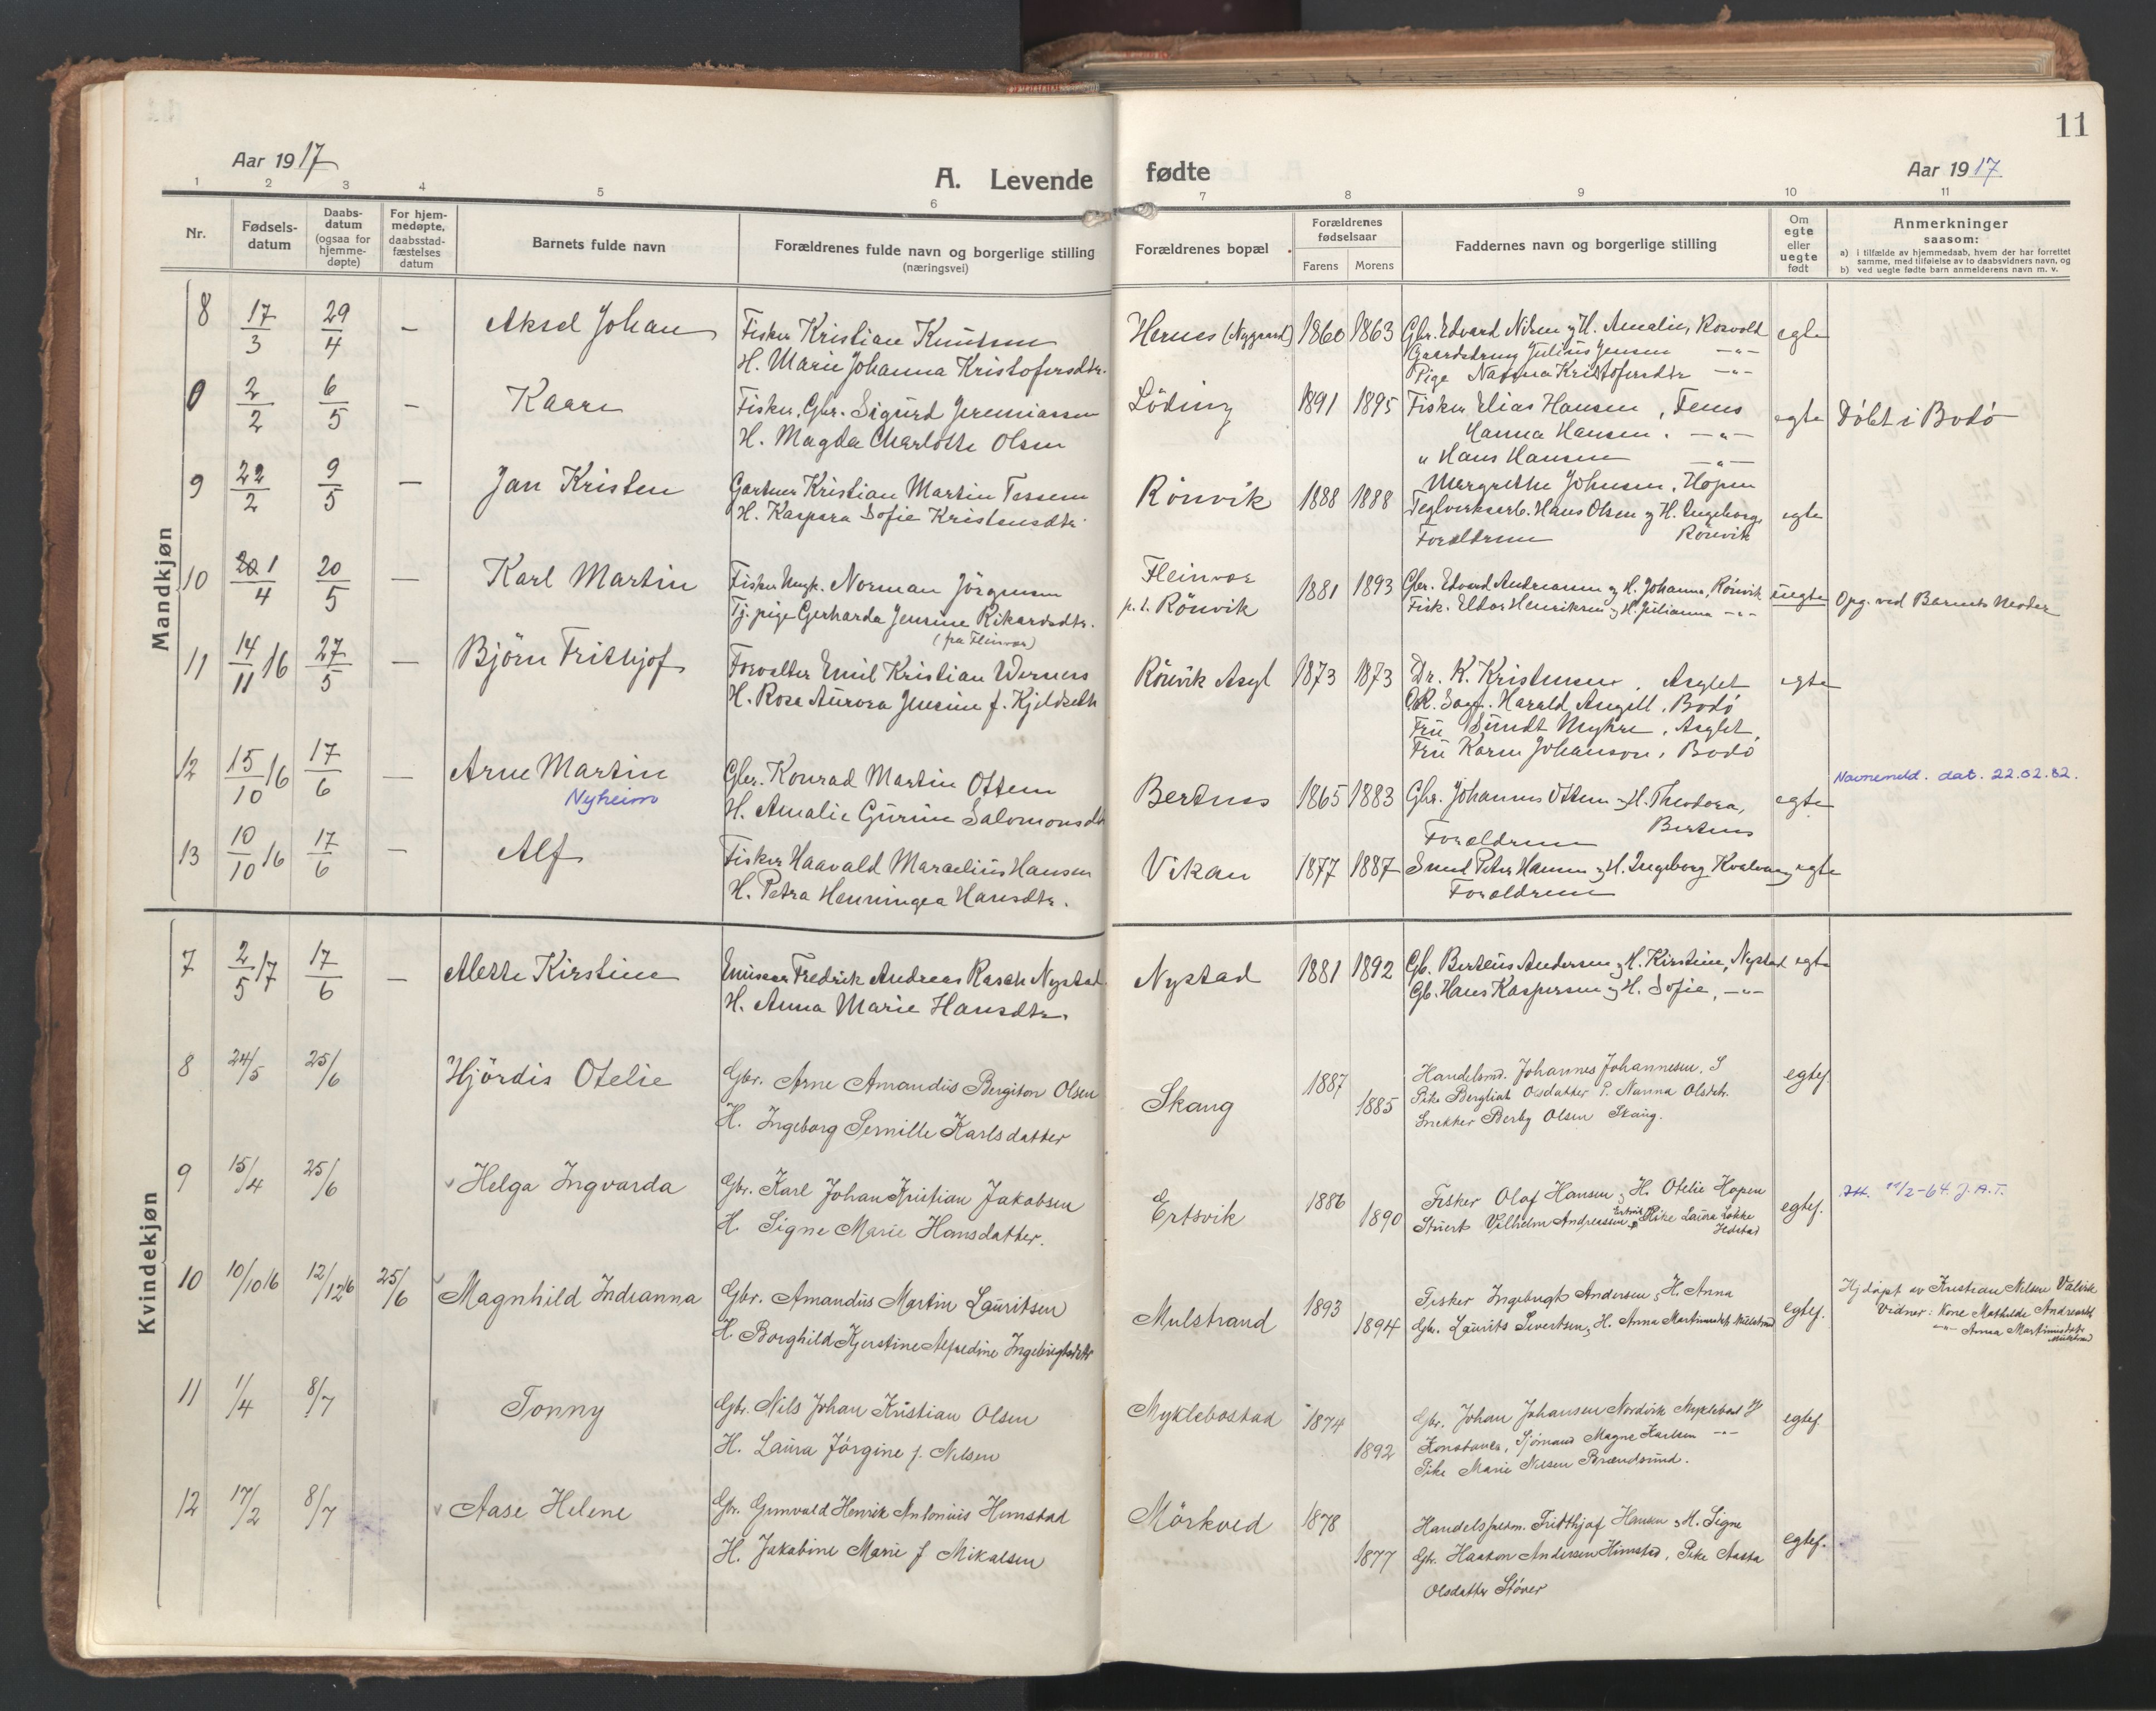 11
Aar 1917
A. Levende fødte
Aar 1917
1 2 3 4 5 6 7 8 9 10 11
Nr.
Fødsels-
datum
Daabs-
datum
(ogsaa for
hjemme-
døpte)
For hjem-
medøpte,
daabsstad-
fæstelses
datum
Barnets fulde navn
Forældrenes fulde navn og borgerlige stilling
(næringsvei)
Forældrenes bopæl
Forældrenes
fødselsaar
Farens Morens
Faddernes navn og borgerlige stilling
Om
egte
eller
uegte
født
Anmerkninger
saasom:
a) i tilfælde av hjemmedaab, hvem der har forrettet
samme, med tilføielse av to daabsvidners navn, og
b) ved uegte fødte barn anmelderens navn m. v.
Mandkjøn
8 17/3 29/4 — Aksel Johan
Fisker Kristian Knutsen
H. Marie Johanna Kristofersdtr.
Hernes (Nygaard) 1860 1863
Gbr. Edvard Nilsen og H. Amalie, Rosvold
Gaardsdreng Julius Jensen —„—
Pige Kristofersdtr —„—
egte
0 2/2 6/5 — Kaare
Fisker, Gbr. Sigurd Jeremiassen
H. Magda Charlotte Olsen
Löding 1891 1895
Fisker Elias Hansen, Fenes
Hanna Hansen. —„—
„ Hans Hansen —„—
egte
Döbt i Bodö
9 22/2 9/5 — Jan Kristen
Gartner Kristian Martin Tessem
H. Kaspara Sofie Kristensdtr.
Rönvik 1888 1888
Margrethe Johnsen, Hopen
Teglverksarb. Hans Olsen og H. Ingeborg,
Forældrene Rönvik
egte
10 1/4 20/5 — Karl Martin
Fisker Ungk. Norman Jörgensen
Tj. pige Gerharda Jensine Rikardsdtr.
(fra Fleinvær)
Fleinvær
p.t. Rönvik
1881 1893
Gbr. Edvard Andreassen og H. Johanna, Rönvik
Fisk. Eldor Henriksen og H. Julianna —„—
uegte
Opg. ved Barnets Moder
11 14/11 16 27/5 — Björn Frithjof
Forvalter Emil Kristian Werness
H. Rosa Aurora Jensine f. Kjeldseth
Rönvik Asyl 1873 1873
Dr. K. Kristensen, Asylet
O.R. Sagf. Harald Angell, Bodö
Fru Sundt Myhre, Asylet,
Fru Karen Johanson, Bodö
egte
12 15/10 16 17/6 — Arne Martin
Nyheim
Gbr. Konrad Martin Ottem
H. Amalie Gurine Salomonsdtr
Bertnes 1865 1883
Gbr. Johannes Ottem og H. Theodora,
Forældrene Bertnes
egte
Navnemeld. dat. 22.02.82.
13 10/10 16 17/6 — Alf
Fisker Haavald Marselius Hansen
H. Petra Henningea Hansdtr.
Vikan 1877 1887
Smed Peter Hansen og H. Ingeborg Kvalvaag
Forældrene
egte
Kvindekjøn
7 2/5 17 17/6 — Alette Kirstine
Emissær Fredrik Andreas Rasch Nystad
H. Anna Marie Hansdtr.
Nystad 1881 1892
Gb. Berteus Andersen og H. Kirstine, Nystad
Gb. Hans Kaspersen og H. Sofie, —„—
egte
8 24/5 25/6 Hjördis Otelie
Gbr. Arne Amandus Bergiton Olsen
H. Ingeborg Pernille Karlsdatter
Skaug 1887 1885
Handelsmd. Johannes Johannesen, S
Pike Bergliot Olsdatter P. Nanna Olsdtr.
Snekker Berby Olsen Skaug.
egtef.
9 15/4 25/6 Helga Ingvarda
Gbr. Karl Johan Kristian Jakobsen
H. Signe Marie Hansdatter.
Ertsvik 1886 1890
Fisker Olaf Hansen og H. Otelie Hopen
Stuert Vilhelm Andreassen Ertsvik, Pike Laura Løkke
egtef.
Att. 11/2-64. J.A.T.
10 10/10 16 12/12 16 25/6 Magnhild Indianna
Gbr. Amandus Martin Lauritsen
H. Borghild Kjerstine Alfredine Ingebrigtsdtr
Mulstrand 1893 1894
Fisker Ingebrigt Andersen og H. Anna
Gbr. Laurits Sivertsen og H. Anna Martinusdtr Mulstrand
egtef.
Hj.døpt av Kristian Nilsen Valvik
Vidner: Kone Mathilde Andreasdt.
—„— Anna Martinusdatr
Mulstrand
11 1/4 8/7 Tonny
Gbr. Nils Johan Kristian Olsen
H. Laura Jörgine f. Nilsen
Myklebostad 1874 1892
Gbr. Johan Johansen Nordvik Myklebost. H
Konstance, Sjömand Magne Karlsen —„—
Pike Marie Nilsen Brændsund.
egtef
12 17/2 8/7 Aase Helene
Gbr. Gunvald Henrik Antonius Himstad
H. Jakobine Marie f. Mikalsen
Mörkved 1878 1877
Handelsfuldm. Frithjof Hansen og H. Signe
Gbr. Haakon Andersen Himstad, Pike Aasta
Olsdatter Støver
egtef.